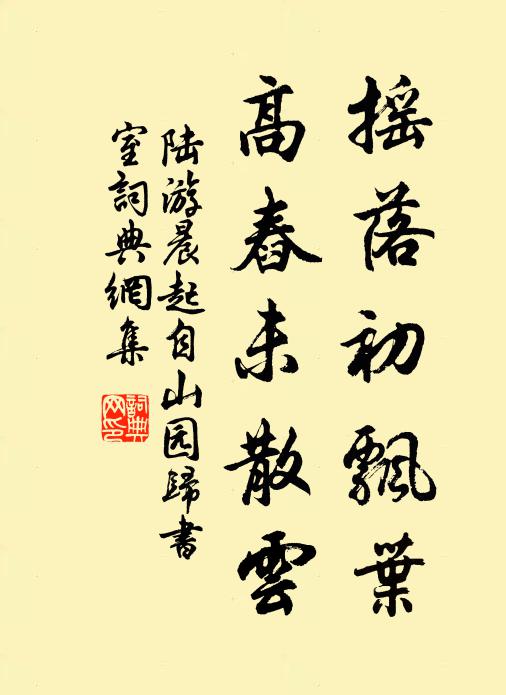 摇落初飄葉
高舂未散雲
陆游晨起自山园歸書
室詞典網集
詞典网印